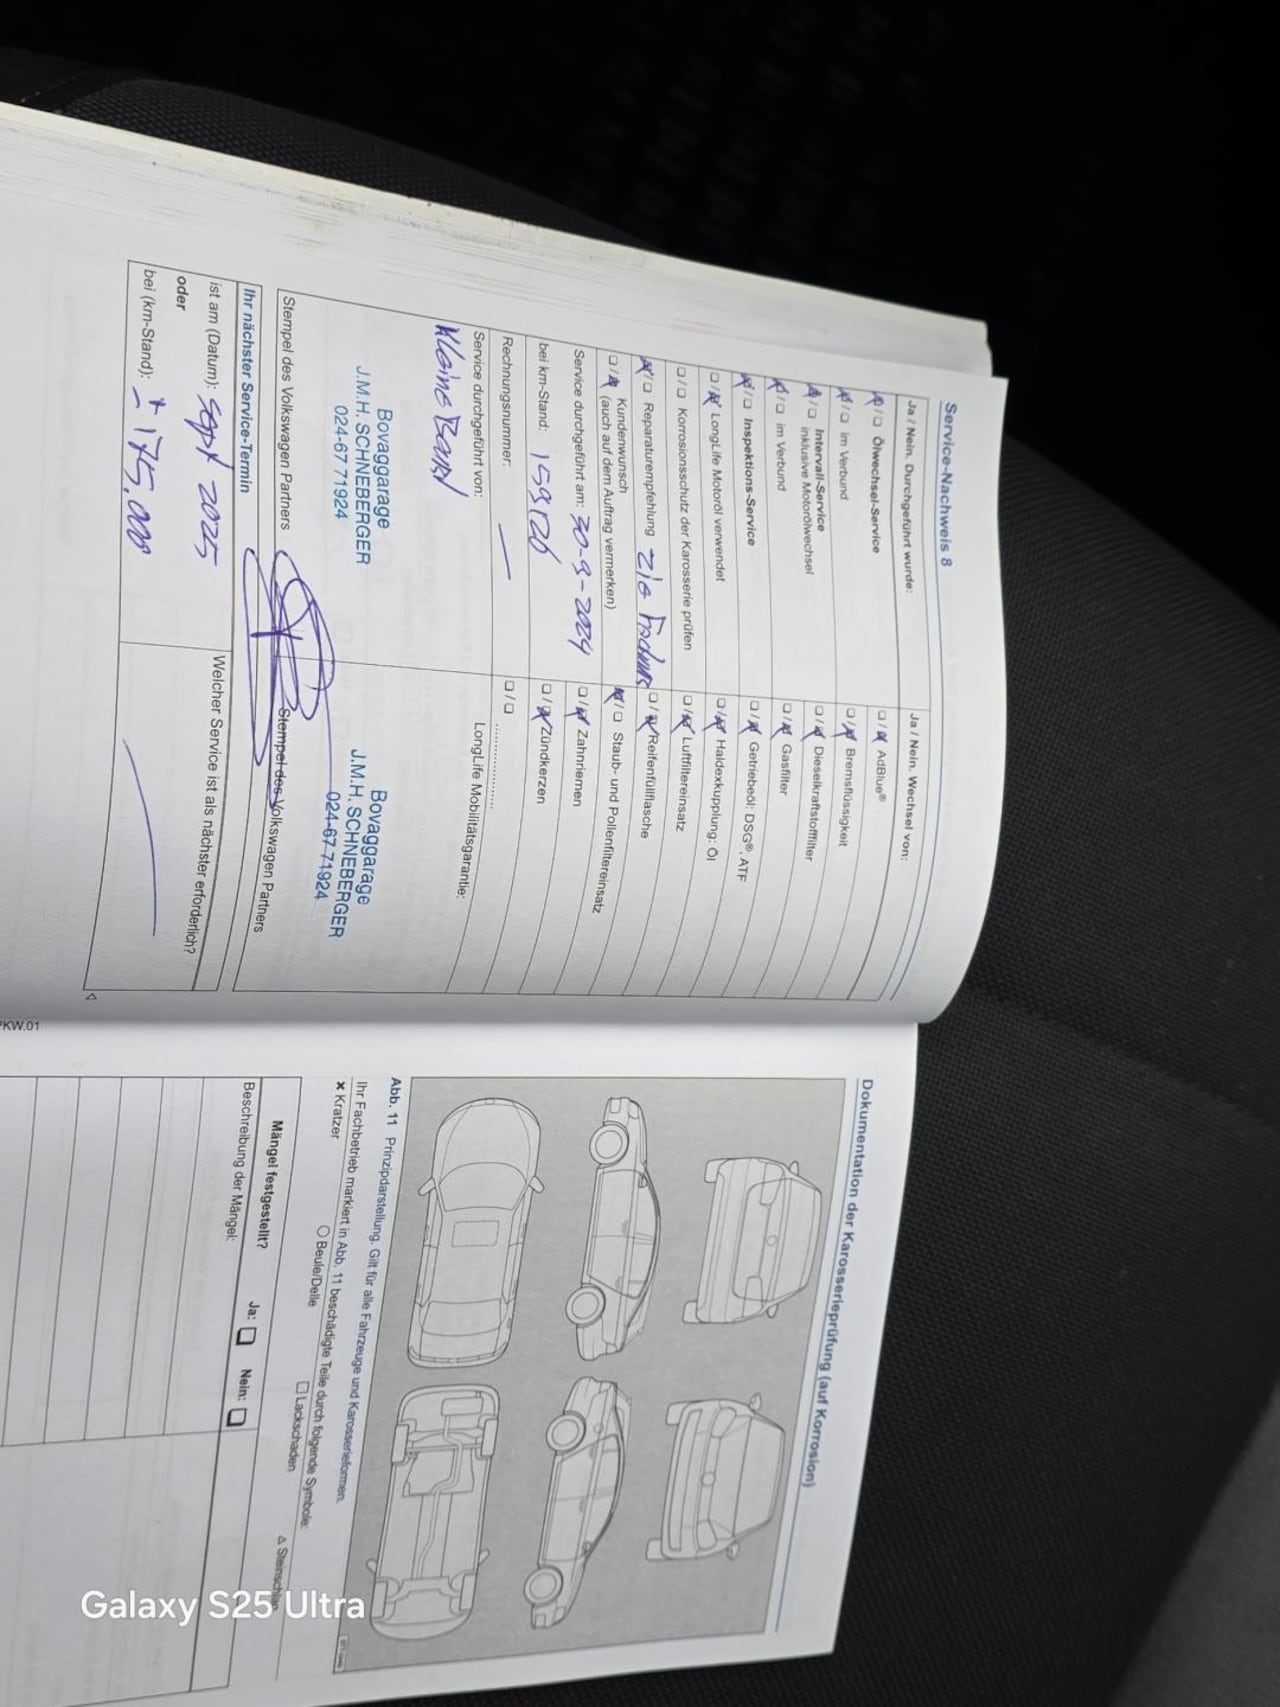 Service-Nachweis 8
Ja / Nein. Durchgeführt wurde:
Ja / Nein. Wechsel von:
Ölwechsel-Service
im Verbund
Intervall-Service
inklusive Motorölwechsel
im Verbund
Inspektions-Service
LongLife Motoröl verwendet
Korrosionsschutz der Karosserie prüfen
Reparaturempfehlung zie
Kundenwunsch
(auch auf dem Auftrag vermerken)
Service durchgeführt am: 30-9-2024
bei km-Stand: 159126
Rechnungsnummer: —
Service durchgeführt von:
Kleine Beurt
Bovaggarage
J.M.H. SCHNEBERGER
024-67 71924
Stempel des Volkswagen Partners
AdBlue®
Bremsflüssigkeit
Dieselkraftstofffilter
Gasfilter
Getriebeöl: DSG®, ATF
Haldexkupplung: Öl
Luftfiltereinsatz
Reifenfüllflasche
Staub- und Pollenfiltereinsatz
Zahnriemen
Zündkerzen
LongLife Mobilitätsgarantie:
Bovaggarage
J.M.H. SCHNEBERGER
024-67 71924
Stempel des Volkswagen Partners
Ihr nächster Service-Termin
ist am (Datum): sept 2025
oder
bei (km-Stand): ± 175.000
Welcher Service ist als nächster erforderlich?
PKW.01
Dokumentation der Karosserieprüfung (auf Korrosion)
Abb. 11 Prinzipdarstellung. Gilt für alle Fahrzeuge und Karosserieformen.
Ihr Fachbetrieb markiert in Abb. 11 beschädigte Teile durch folgende Symbole:
× Kratzer
○ Beule/Delle
□ Lackschaden
△ Steinschlag
Mängel festgestellt?
Ja: □ Nein: □
Beschreibung der Mängel:
Galaxy S25 Ultra